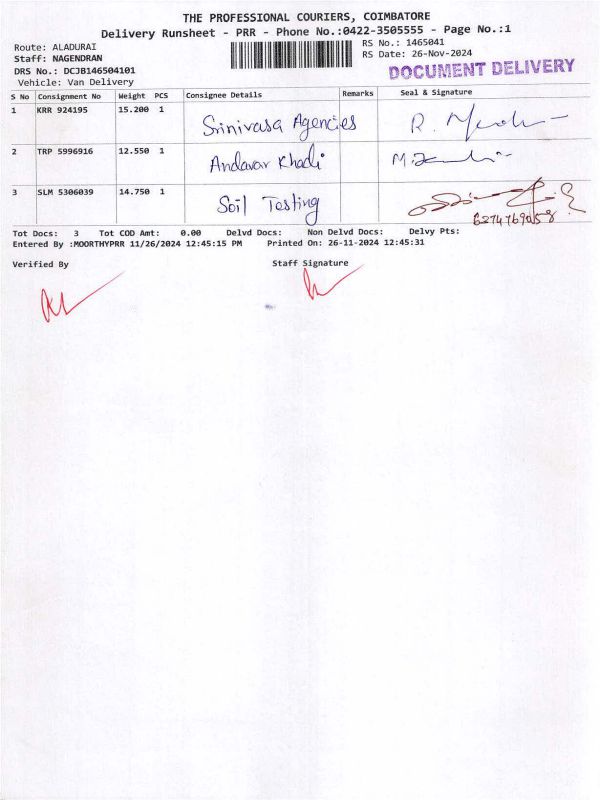 THE PROFESSIONAL COURIERS, COIMBATORE
Delivery Runsheet - PRR - Phone No.:0422-3505555 - Page No.:1
Route: ALADURAI
RS No.: 1465041
Staff: NAGENDRAN
RS Date: 26-Nov-2024
DRS No.: DCJB146504101
DOCUMENT DELIVERY
Vehicle: Van Delivery
S No Consignment No Weight PCS Consignee Details Remarks Seal & Signature
1 KRR 924195 15.200 1 Srinivasa Agencies R.
2 TRP 5996916 12.550 1 Andavar Khadi M.
3 SLM 5306039 14.750 1 Soil Testing
6374769058
Tot Docs: 3 Tot COD Amt: 0.00 Delvd Docs: Non Delvd Docs: Delvy Pts:
Entered By :MOORTHYPRR 11/26/2024 12:45:15 PM Printed On: 26-11-2024 12:45:31
Verified By Staff Signature